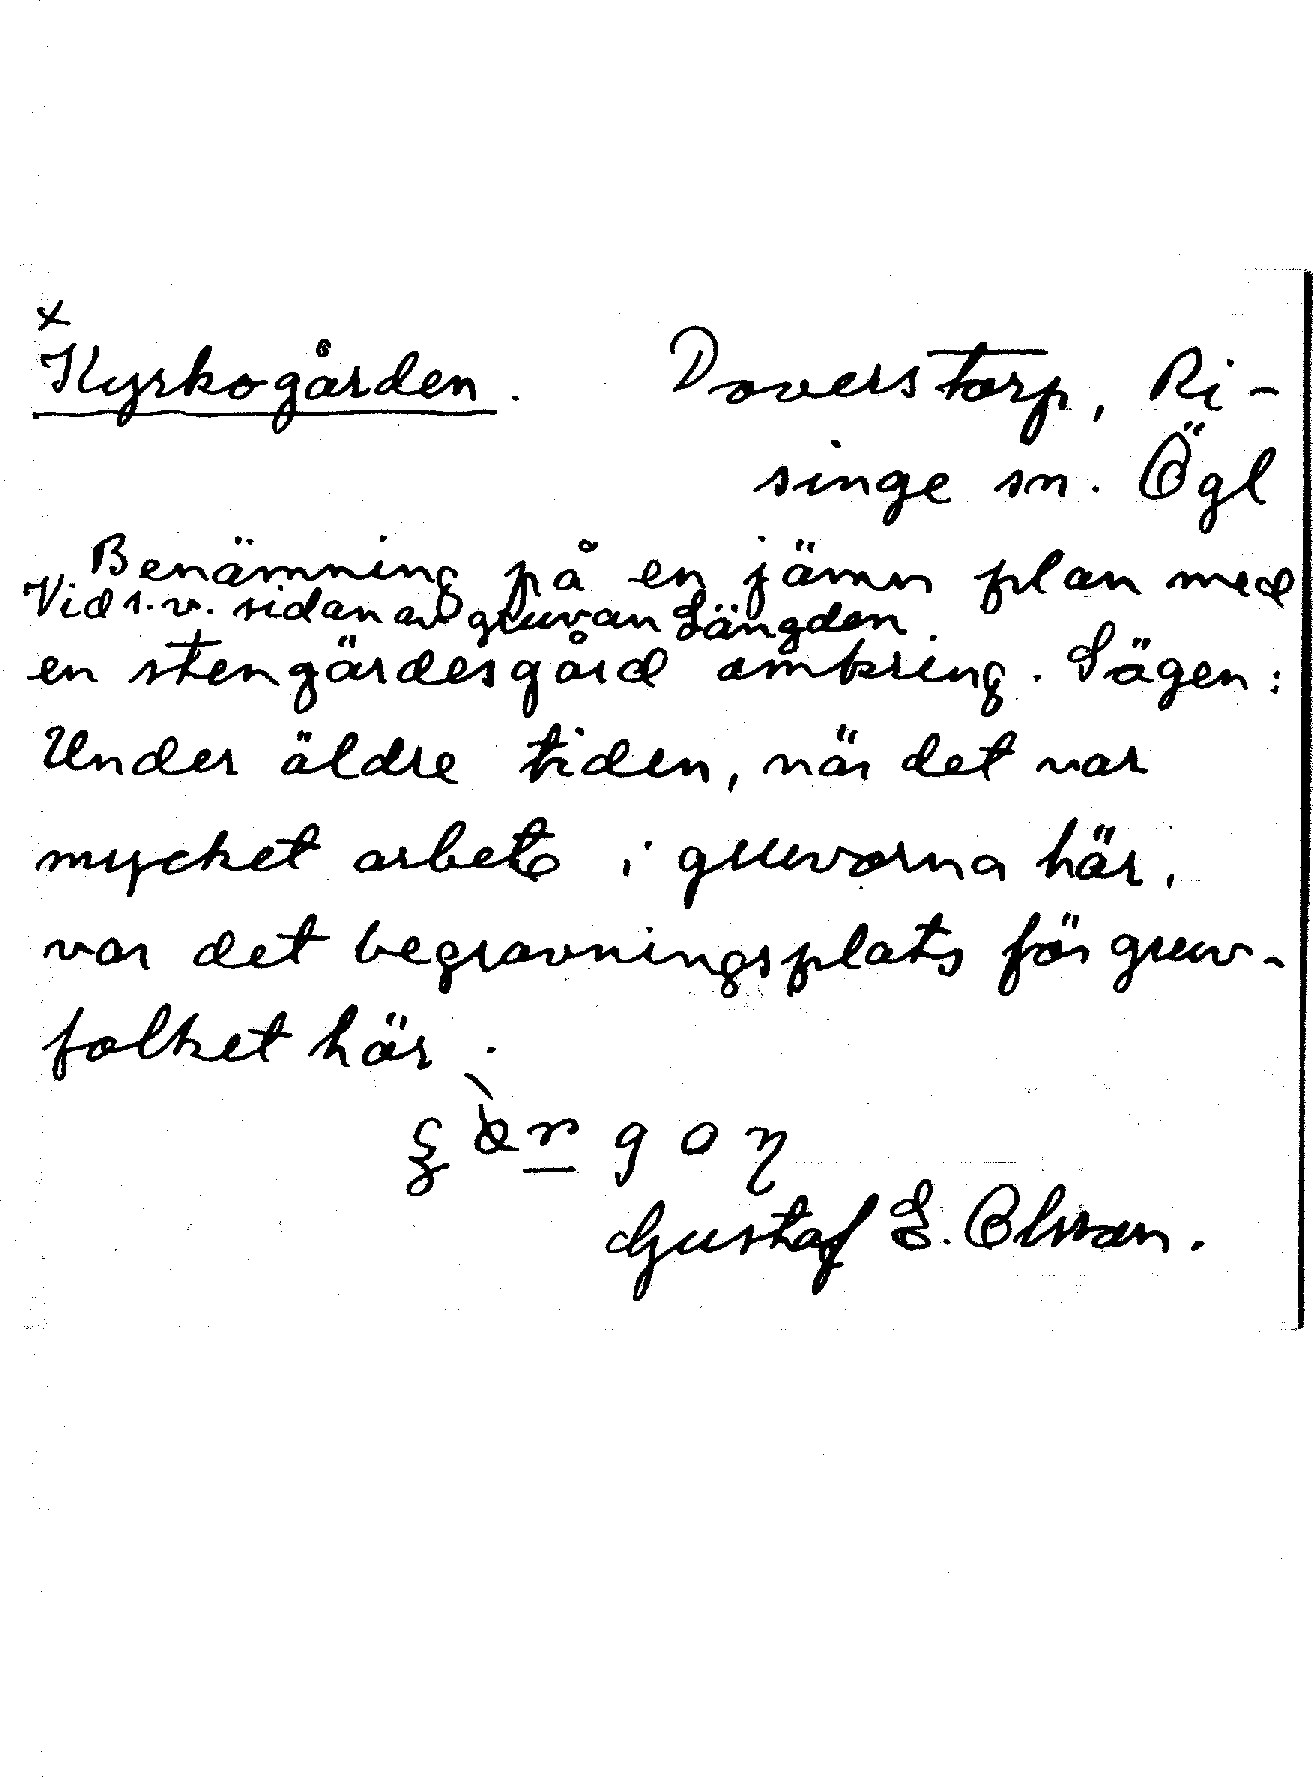 x
Kyrkogården. Doverstorp, Ri-
singe sn. Ögl
Benämning på en jämn plan med
Vid s.v. sidan av gruvan Längden.
en stengärdesgård omkring. Sägen:
Under äldre tiden, när det var
mycket arbete i gruvorna här,
var det begravningsplats för gruv-
folket här.
Gustaf E. Olsson.